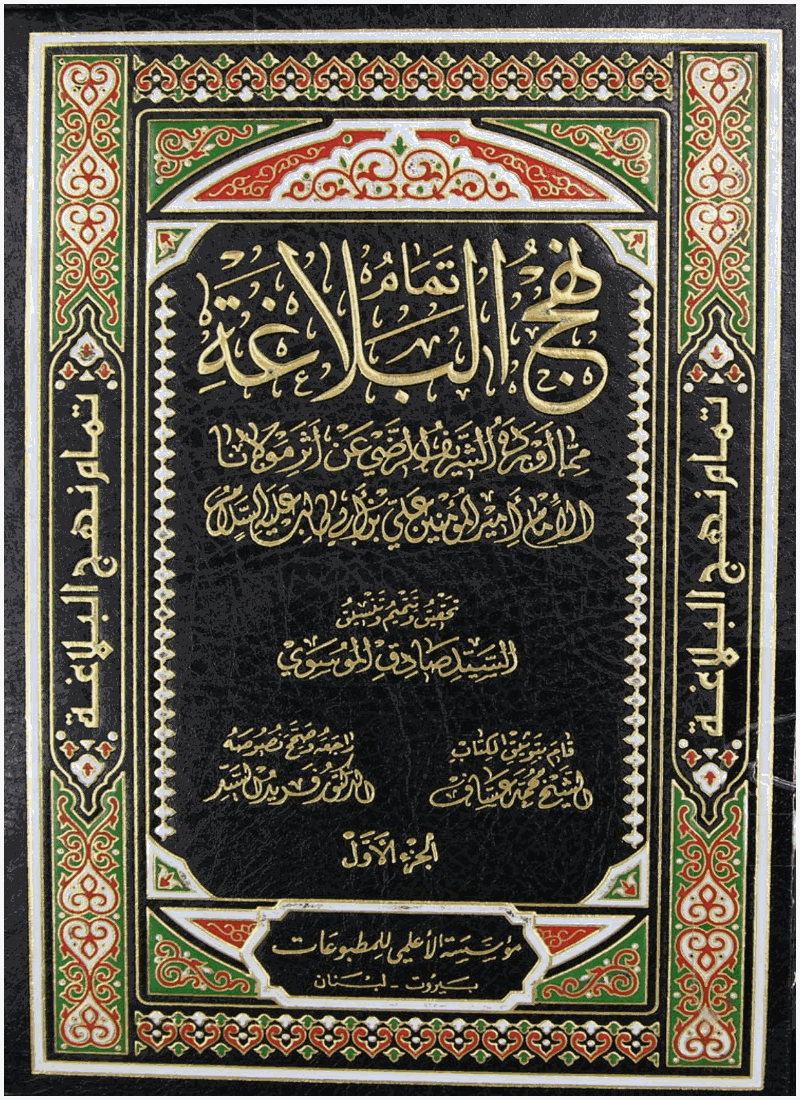 تمام
نهج البلاغة
مما أورده الشريف الرضي عن أثر مولانا
الإمام أمير المؤمنين علي بن أبي طالب عليه السلام
تحقيق وتتميم وتنسيق
السيد صادق الموسوي
قام بتوثيق الكتاب
الشيخ محمد عساف
راجعه وصحح نصوصه
الدكتور فريد السيد
الجزء الأول
مؤسسة الأعلمي للمطبوعات
بيروت - لبنان
تمام نهج البلاغة
تمام نهج البلاغة